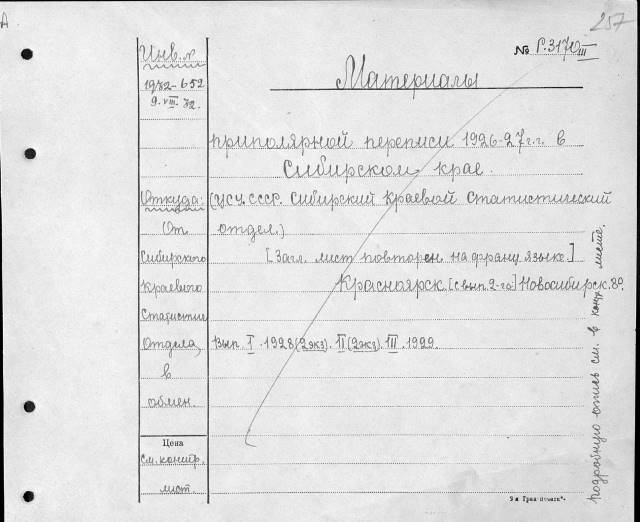 А
257
Инв. №
1932-652
9.VIII.32.
№ Г.3170 III
Материалы
приполярной переписи 1926-27 г.г. в
Сибирском крае.
Откуда:
От
Сибирского
Краевого
Статистич
Отдела,
в
обмен.
(ЦСУ. СССР. Сибирский Краевой Статистический
отдел.)
[Загл. лист повторен на франц языке.]
Красноярск. [с вып. 2-го] Новосибирск. 8º
Вып. I. 1928 (2 экз). II (2 экз). III. 1929.
Цена
См. контр.
лист.
подробную опись см. в конц листе.